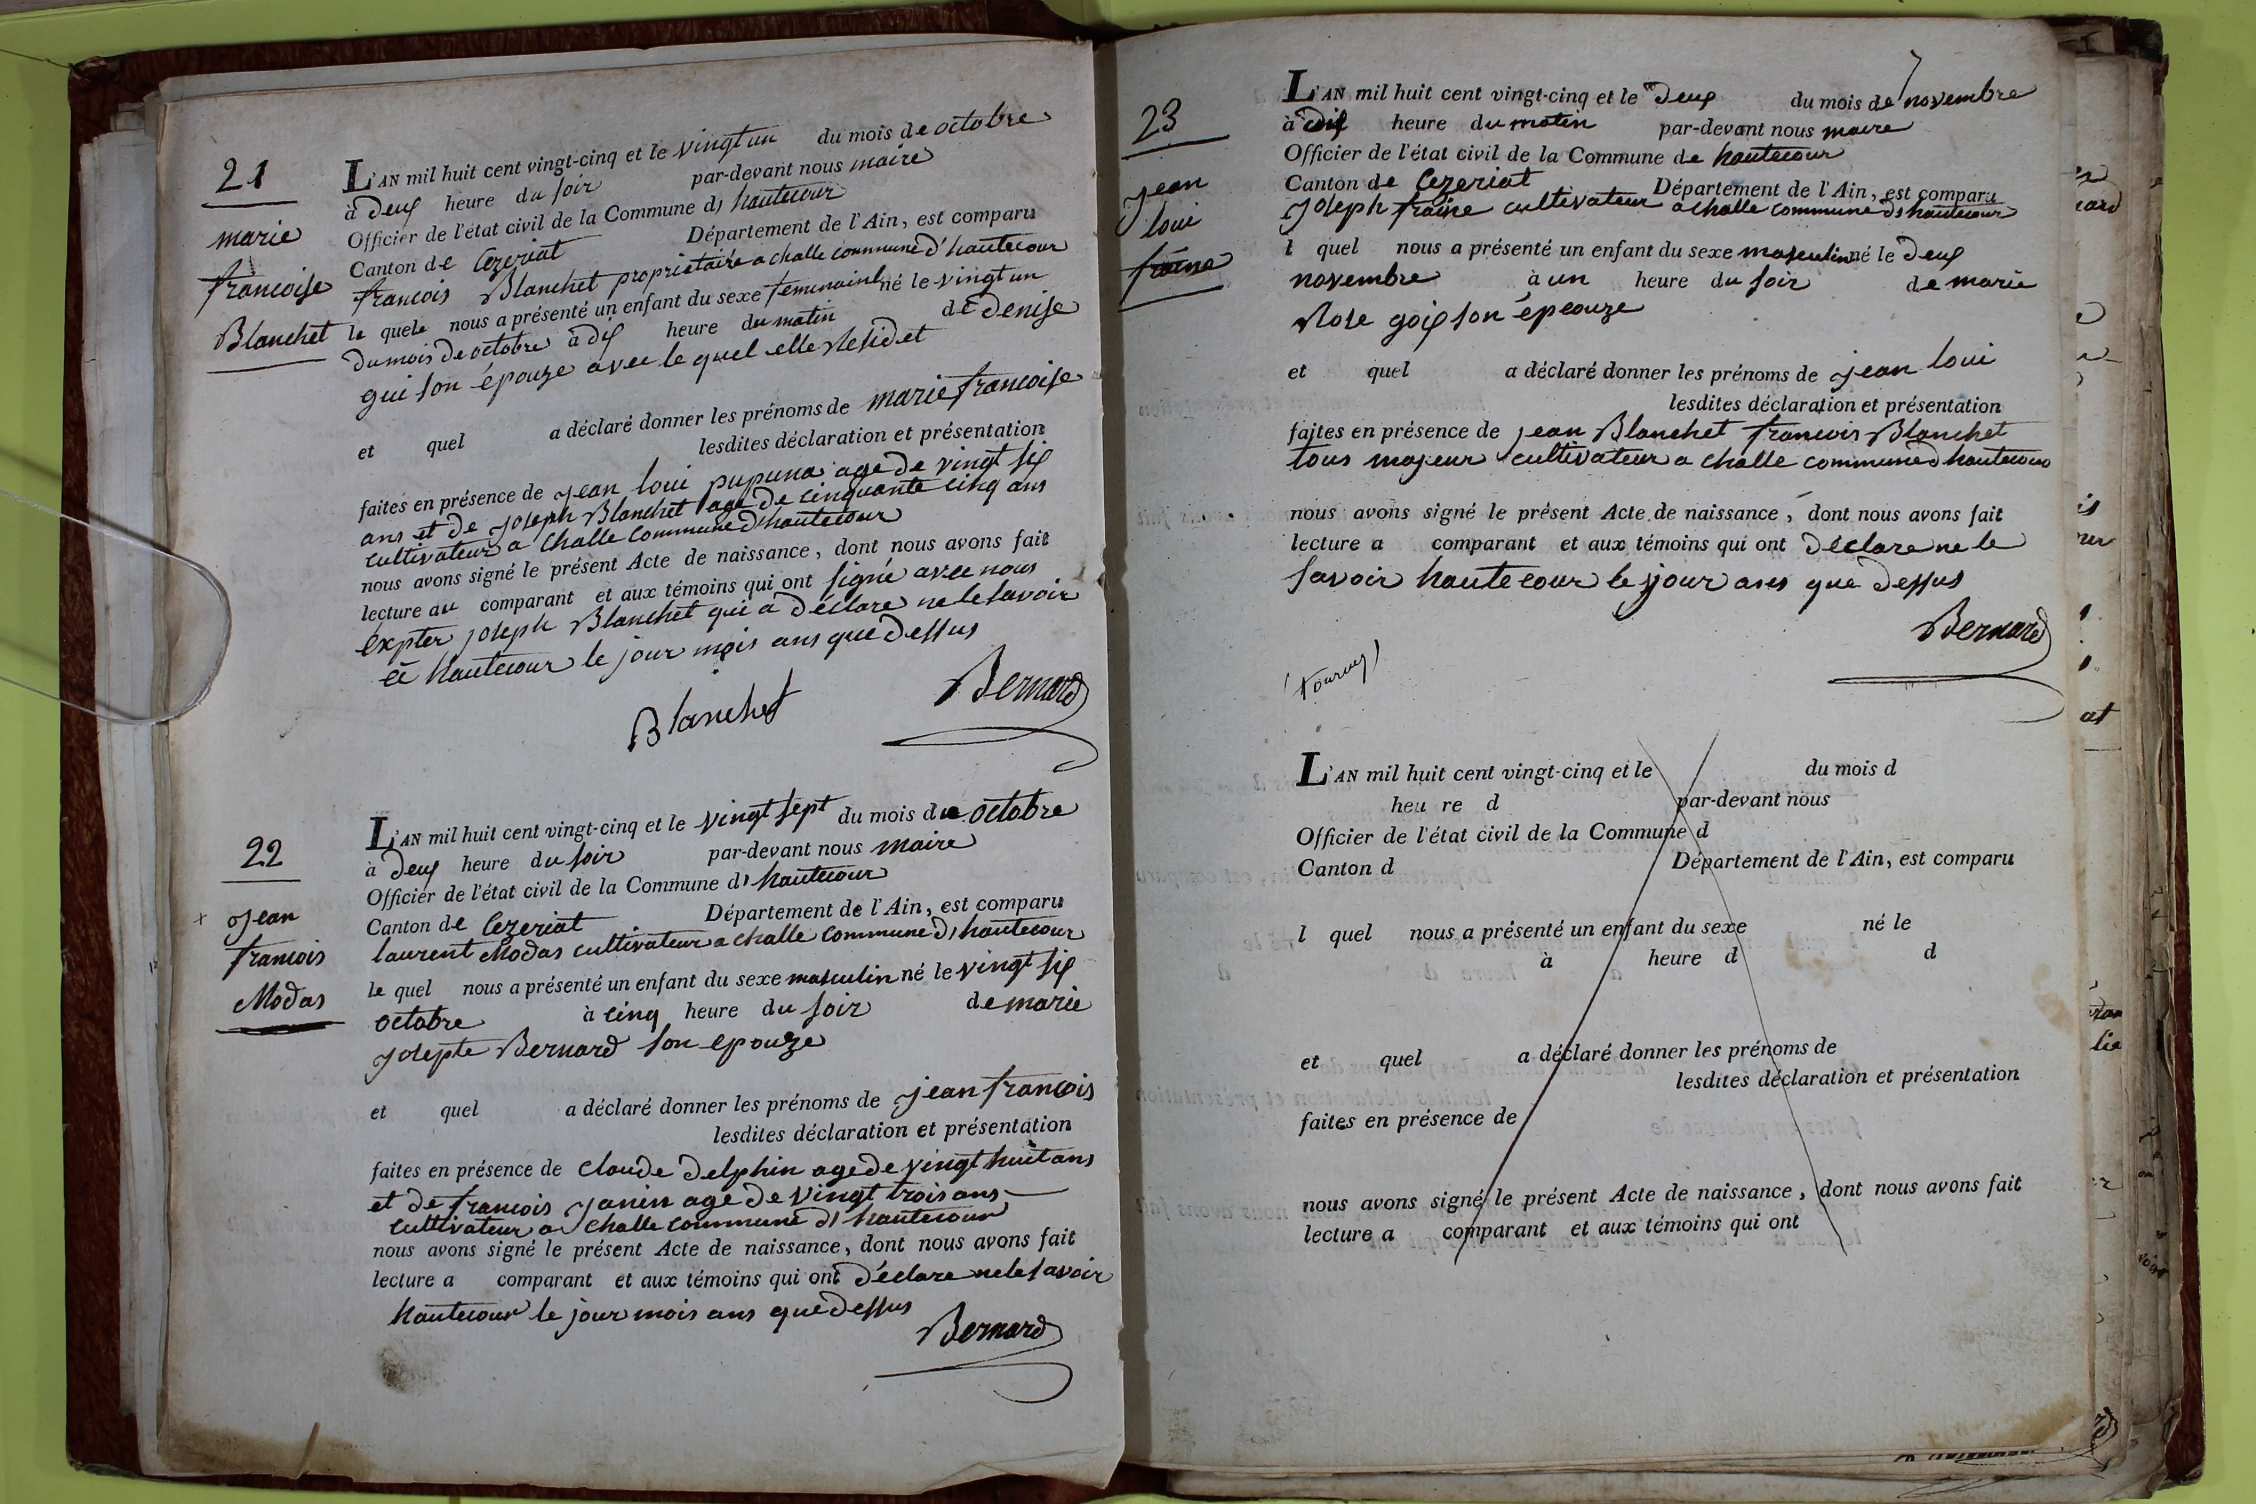 21
marie
francoise
Blanchet
L'AN mil huit cent vingt-cinq et le vingt un du mois de octobre
à deux heure du soir par-devant nous maire
Officier de l'état civil de la Commune d, hautecour
Canton de Cezeriat Département de l'Ain, est comparu
francois Blanchet proprietaire a challe commune d'hautecour
le quele nous a présenté un enfant du sexe feminainl né le vingt un
du mois de octobre à dix heure du matin de denise
gui son épouze avec le quel elle Residet
et quel a déclaré donner les prénoms de marie francoise
lesdites déclaration et présentation
faites en présence de jean loui pupunat age de vingt six
ans et de joseph Blanchet age de cinquante cinq ans
cultivateur a challe commune d'hautecour
nous avons signé le présent Acte de naissance, dont nous avons fait
lecture au comparant et aux témoins qui ont signé avec nous
expter joseph Blanchet qui a déclare ne le savoir
a hautecour le jour mois ans que dessus
Blanchet
Bernard
22
jean
francois
Modas
L'AN mil huit cent vingt-cinq et le vingt sept du mois de octobre
à deux heure du soir par-devant nous maire
Officier de l'état civil de la Commune d, hautecour
Canton de Cezeriat Département de l'Ain, est comparu
laurent Modas cultivateur a challe commune d, hautecour
le quel nous a présenté un enfant du sexe masculin né le vingt six
octobre à cinq heure du soir de marie
josepte Bernard son epouze
et quel a déclaré donner les prénoms de jean francois
lesdites déclaration et présentation
faites en présence de claude delphin age de vingt huit ans
et de francois janin age de vingt trois ans
cultivateur a challe commune d, hautecour
nous avons signé le présent Acte de naissance, dont nous avons fait
lecture a comparant et aux témoins qui ont déclare ne le savoir
hautecour le jour mois ans que dessus
Bernard
23
jean
loui
fraine
L'AN mil huit cent vingt-cinq et le deux du mois de novembre
à dix heure du matin par-devant nous maire
Officier de l'état civil de la Commune de hautecour
Canton de Cezeriat Département de l'Ain, est comparu
joseph fraine cultivateur a challe commune d, hautecour
l quel nous a présenté un enfant du sexe masculin né le deux
novembre à un heure du soir de marie
Rose goix son épeouze
et quel a déclaré donner les prénoms de jean loui
lesdites déclaration et présentation
faites en présence de jean Blanchet francois Blanchet
tous majeur cultivateur a challe commune d hautecour
nous avons signé le présent Acte de naissance, dont nous avons fait
lecture a comparant et aux témoins qui ont déclare ne le
savoir hautecour le jour ans que dessus
Bernard
L'AN mil huit cent vingt-cinq et le du mois d
heu re d par-devant nous
Officier de l'état civil de la Commune d
Canton d Département de l'Ain, est comparu
l quel nous a présenté un enfant du sexe né le
à heure d d
et quel a déclaré donner les prénoms de
lesdites déclaration et présentation
faites en présence de
nous avons signé le présent Acte de naissance, dont nous avons fait
lecture a comparant et aux témoins qui ont